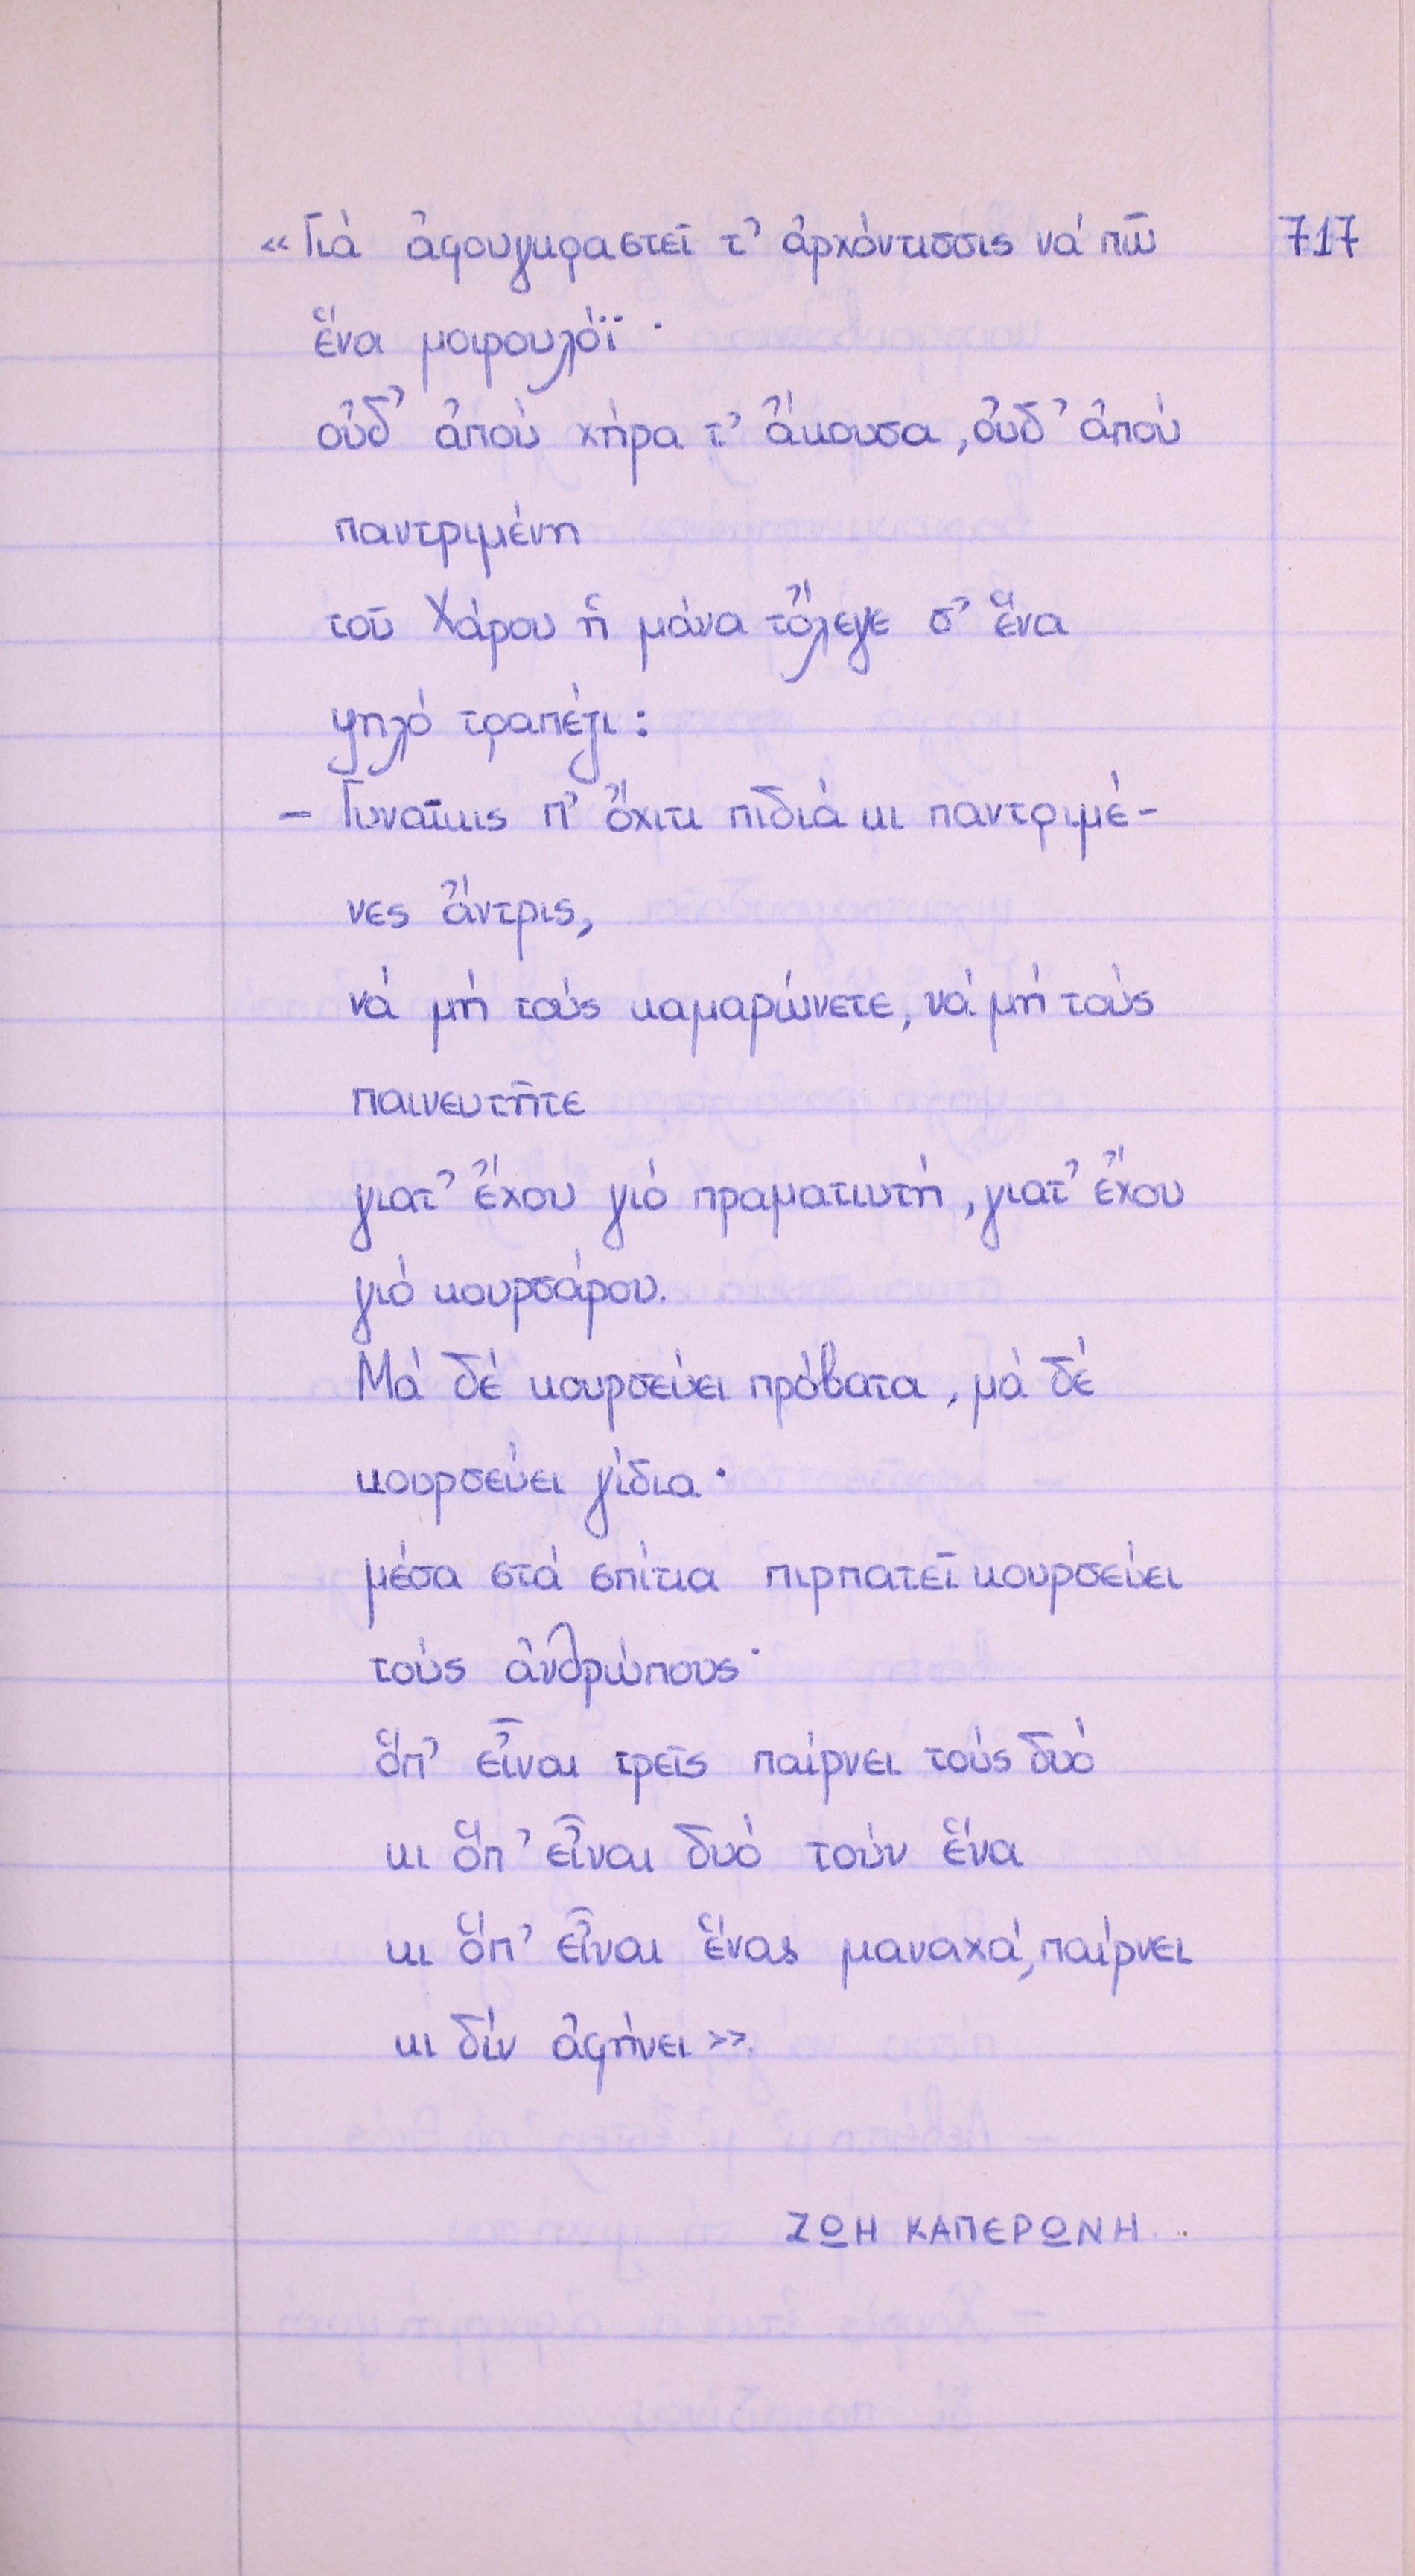 «Γιὰ ἀφουγκραστεῖ τ' ἀρχόντισσις νά πῶ 717
ἕνα μοιρουλόϊ·
οὐδ' ἀπού χήρα τ' ἄκουσα, οὐδ' ἀπού
παντριμένη
τοῦ Χάρου ἡ μάνα τὄλεγε σ' ἕνα
ψηλό τραπέζι:
– Γυναῖκις π' ὄχιτι πιδιά κι παντριμέ-
νες ἄντρις,
νά μή τούς καμαρώνετε, νά μή τούς
παινευτῆτε
γιατ' ἔχου γιό πραματιυτή, γιατ' ἔχου
γιό κουρσάρου.
Μά δέ κουρσεύει πρόβατα, μά δέ
κουρσεύει γίδια·
μέσα στά σπίτια πιρπατεῖ κουρσεύει
τούς ἀνθρώπους·
ὅπ' εἶναι τρεῖς παίρνει τούς δυό
κι ὅπ' εἶναι δυό τούν ἕνα
κι ὅπ' εἶναι ἕνας μαναχά, παίρνει
κι δίν ἀφήνει».
ΖΩΗ ΚΑΠΕΡΩΝΗ